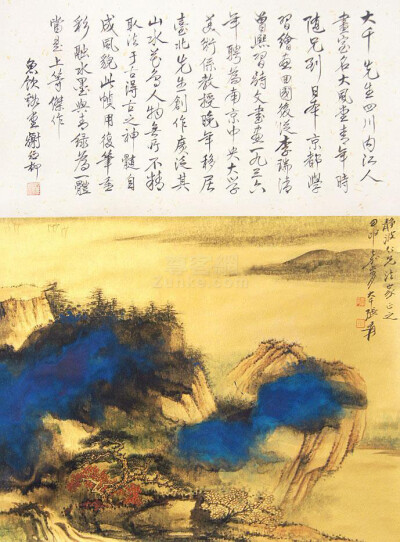 大千先生四川内江人
畫室名大風堂青年時
隨兄到日本京都學
習繪畫回國後從李瑞清
曾熙習詩文書畫一九三六
年聘為南京中央大学
美術係教授晚年移居
臺北先生創作廣泛其
山水花鳥人物無所不精
取法于古得古之神髓自
成風貌此帧用複筆重
彩融水墨與青綠為一體
當是上等傑作
魚飲溪堂謝稚柳
靜波仁兄法家正之
大千張爰